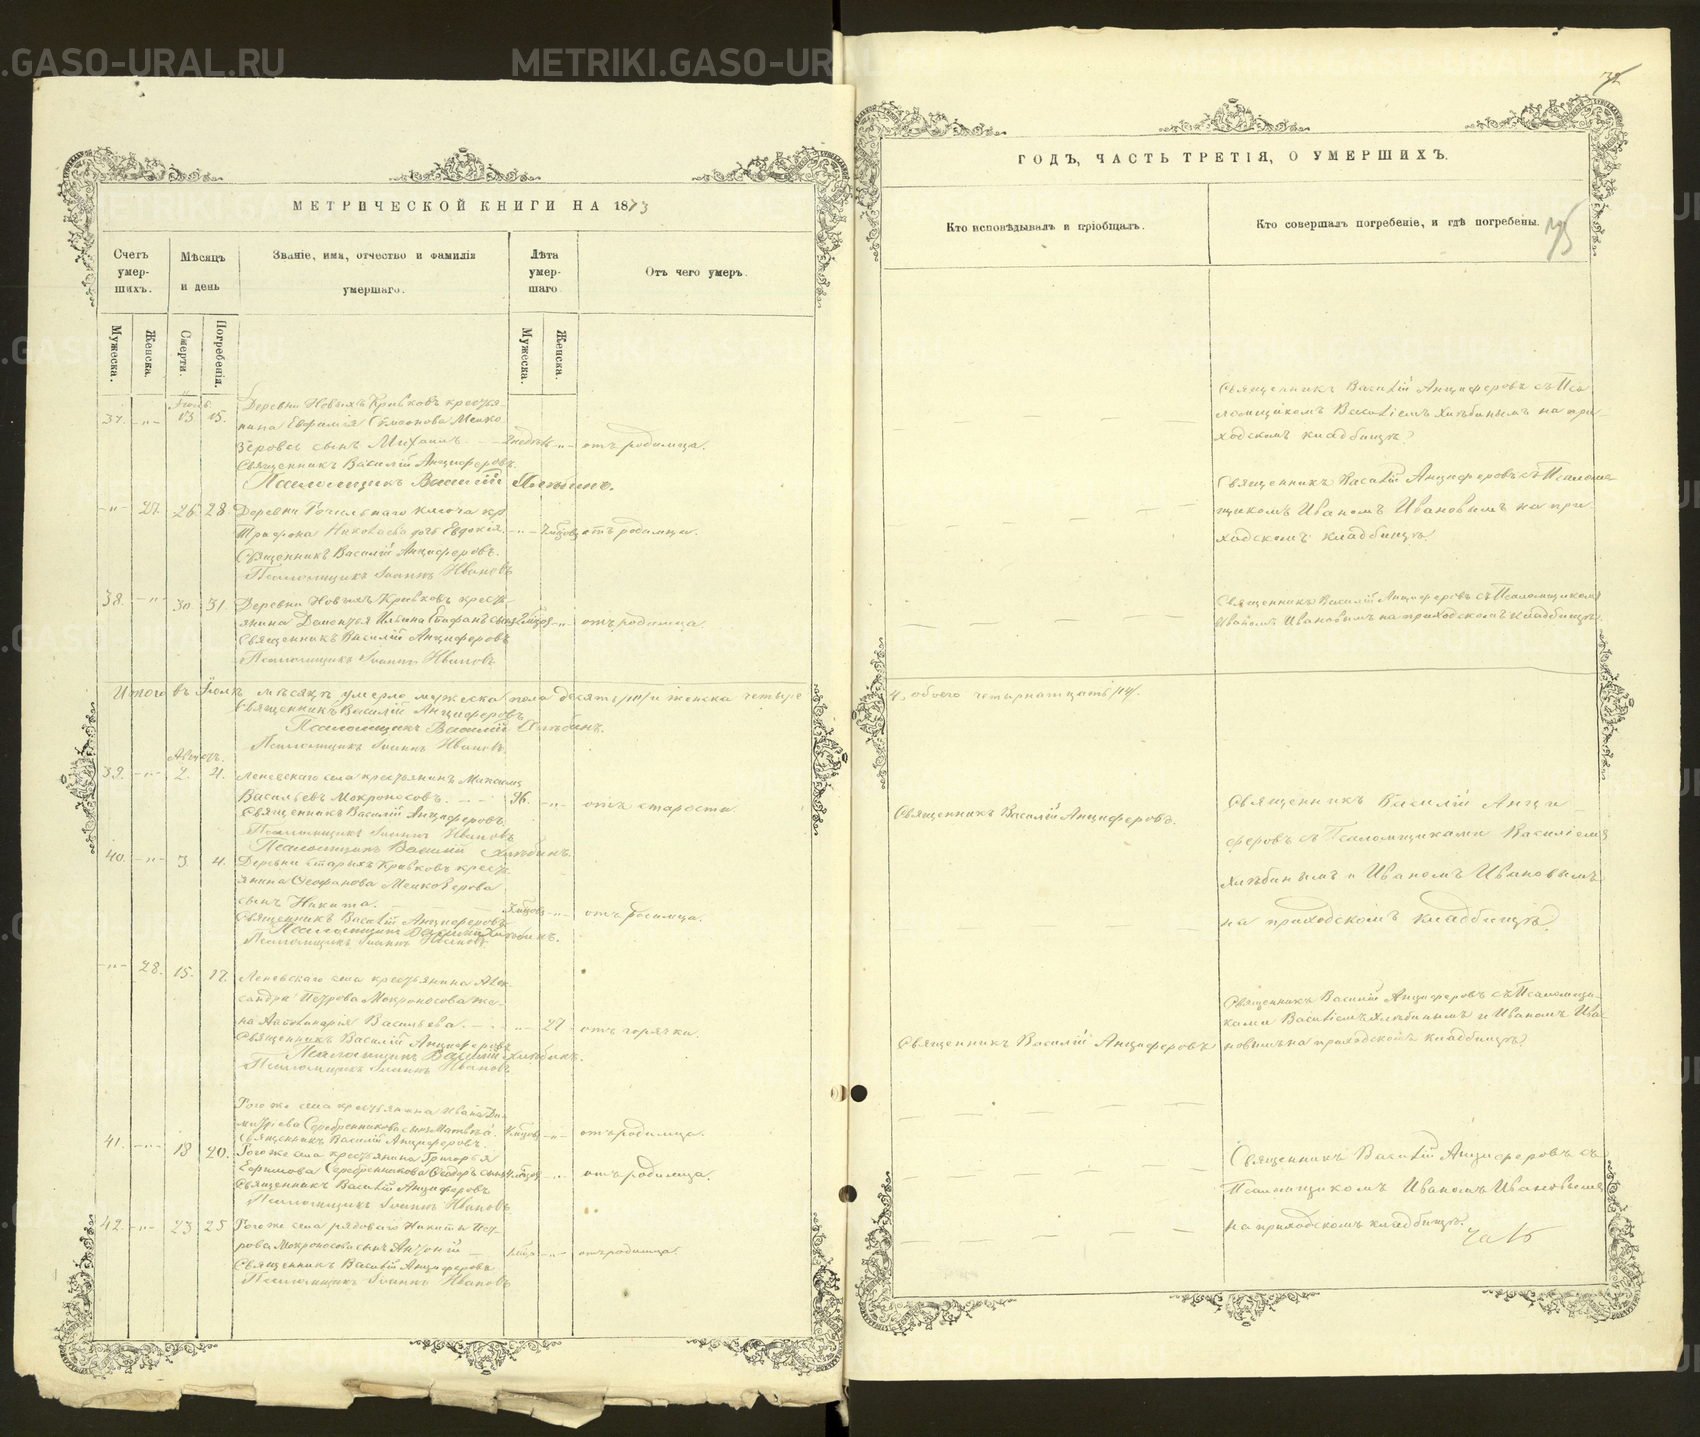 МЕТРИЧЕСКОЙ КНИГИ НА 1873
Счетъ умер-шихъ.
Мѣсяцъ и день
Званіе, имя, отчество и фамилія умершаго.
Лѣта умер-шаго
Отъ чего умеръ.
Мужеска.
Женска.
Смерти.
Погребенія.
Мужеска.
Женска.
37. 13 15. Деревни Новыхъ Кривковъ кресть-
янина Евфимія Симеонова
сынъ Михаилъ отъ родимца.
Священникъ Василій Анциферовъ.
Псаломщикъ Василій Хлѣбинъ.
27. 26. 28. Деревни ключа кр
Трифона Николаева дочь Евдокія отъ родимца.
Священникъ Василій Анциферовъ.
Псаломщикъ Іоаннъ Ивановъ
38. 30. 31. Деревни Новыхъ Кривковъ кресть-
янина Ильина Стефанъ отъ родимца.
Священникъ Василій Анциферовъ
Псаломщикъ Іоаннъ Ивановъ
Итого въ Іюлѣ мѣсяцѣ умерло мужеска пола десять /10/ и женска четыре
Священникъ Василій Анциферовъ
Псаломщикъ Василій Хлѣбинъ.
Псаломщикъ Іоаннъ Ивановъ.
Августъ.
39. 2. 4. Леневскаго села крестьянинъ Максимъ
Васильевъ Мокроносовъ. отъ старости
Священникъ Василій Анциферовъ
Псаломщикъ Іоаннъ Ивановъ
Псаломщикъ Василій Хлѣбинъ.
40. 3. 4. Деревни Старыхъ Кривковъ кресть-
янина
сынъ Никита. отъ родимца.
Священникъ Василій Анциферовъ
Псаломщикъ Василій Хлѣбинъ.
Псаломщикъ Іоаннъ Ивановъ
28. 15. 17. Леневскаго села крестьянина Алек-
сандра Петрова Мокроносова же-
на Васильева. 27 отъ горячки.
Священникъ Василій Анциферовъ
Псаломщикъ Василій Хлѣбинъ.
Псаломщикъ Іоаннъ Ивановъ
Того же села крестьянина Ивана Ди-
митріева Серебренникова сынъ отъ родимца.
Священникъ Василій Анциферовъ.
41. 18 20. Того же села крестьянина Григорья
Ефимова Серебренникова Ѳеодоръ отъ родимца.
Священникъ Василій Анциферовъ
Псаломщикъ Іоаннъ Ивановъ
42. 23 25 Того же села рядоваго Никиты Пет-
рова Мокроносова сынъ Антоній отъ родимца.
Священникъ Василій Анциферовъ
Псаломщикъ Іоаннъ Ивановъ
ГОДЪ, ЧАСТЬ ТРЕТІЯ, О УМЕРШИХЪ.
Кто исповѣдывалъ и пріобщалъ.
Кто совершалъ погребеніе, и гдѣ погребены.
Священникъ Василій Анциферовъ съ Пса-
ломщикомъ Василіемъ Хлѣбинымъ на при-
ходскомъ кладбищѣ
Священникъ Василій Анциферовъ съ Псалом-
щикомъ Иваномъ Ивановымъ на при
ходскомъ кладбищѣ
Священникъ Василій Анциферовъ съ Псаломщикомъ
Иваномъ Ивановымъ на приходскомъ кладбищѣ.
4. обоего четырнатцать /14/.
Священникъ Василій Анциферовъ.
Священникъ Василій Анци-
феровъ съ Псаломщиками Василіемъ
Хлѣбинымъ и Иваномъ Ивановымъ
на приходскомъ кладбищѣ
Священникъ Василій Анциферовъ
Священникъ Василій Анциферовъ съ Псаломщи-
ками Василіемъ Хлѣбинымъ и Иваномъ Ива-
новымъ на приходскомъ кладбищѣ
Священникъ Василій Анциферовъ съ
Псаломщикомъ Иваномъ Ивановымъ
на приходскомъ кладбищѣ.
METRIKI.GASO-URAL.RU